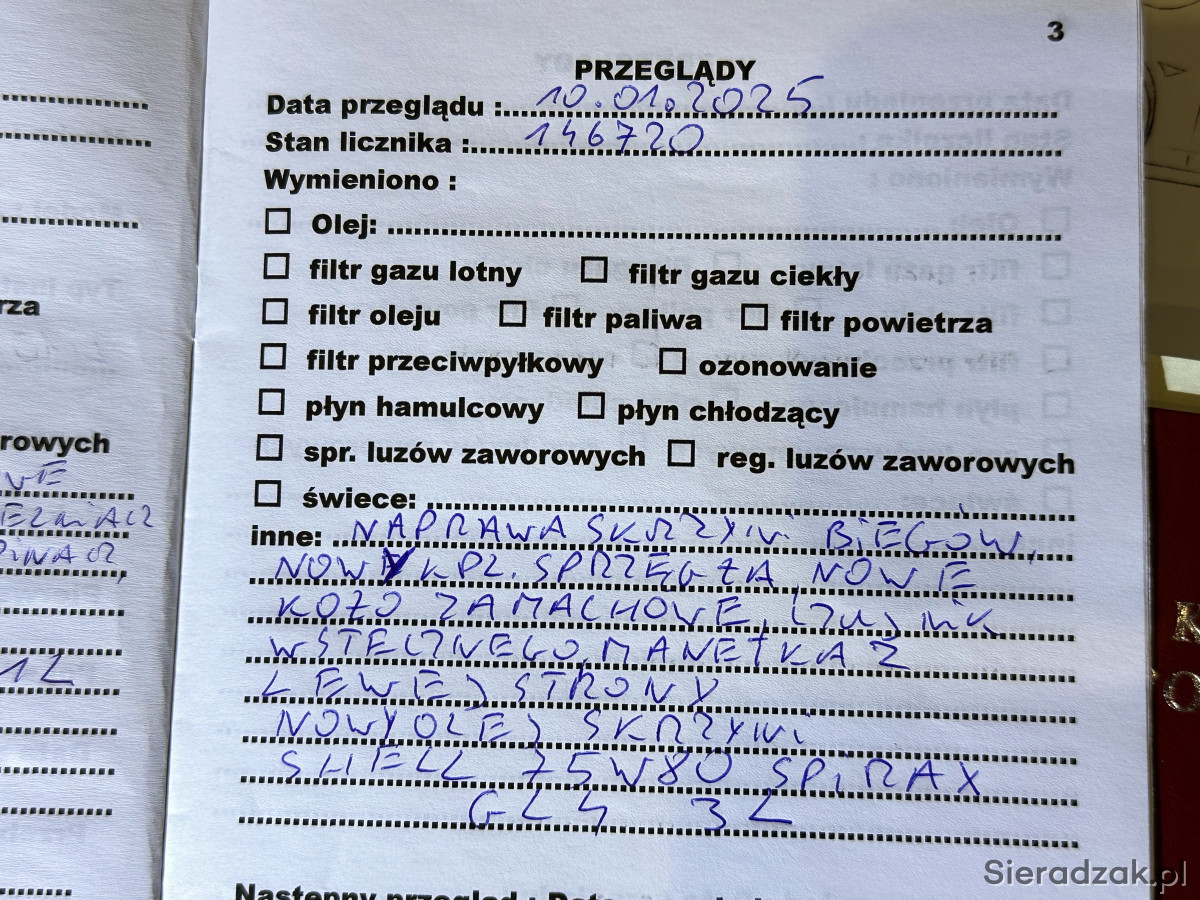 3
PRZEGLĄDY
Data przeglądu : 10.01.2025
Stan licznika : 146720
Wymieniono :
Olej:
filtr gazu lotny filtr gazu ciekły
filtr oleju filtr paliwa filtr powietrza
filtr przeciwpyłkowy ozonowanie
płyn hamulcowy płyn chłodzący
spr. luzów zaworowych reg. luzów zaworowych
świece:
inne: NAPRAWA SKRZYNI BIEGÓW,
NOWY KPL. SPRZĘGŁA, NOWE
KOŁO ZAMACHOWE, CZUJNIK
WSTECZNEGO, MANETKA Z
LEWEJ STRONY
NOWY OLEJ SKRZYNI
SHELL 75W80 SPIRAX
GL4 3L
Następny przegląd : Data
rza
rowych
1L
Sieradzak.pl